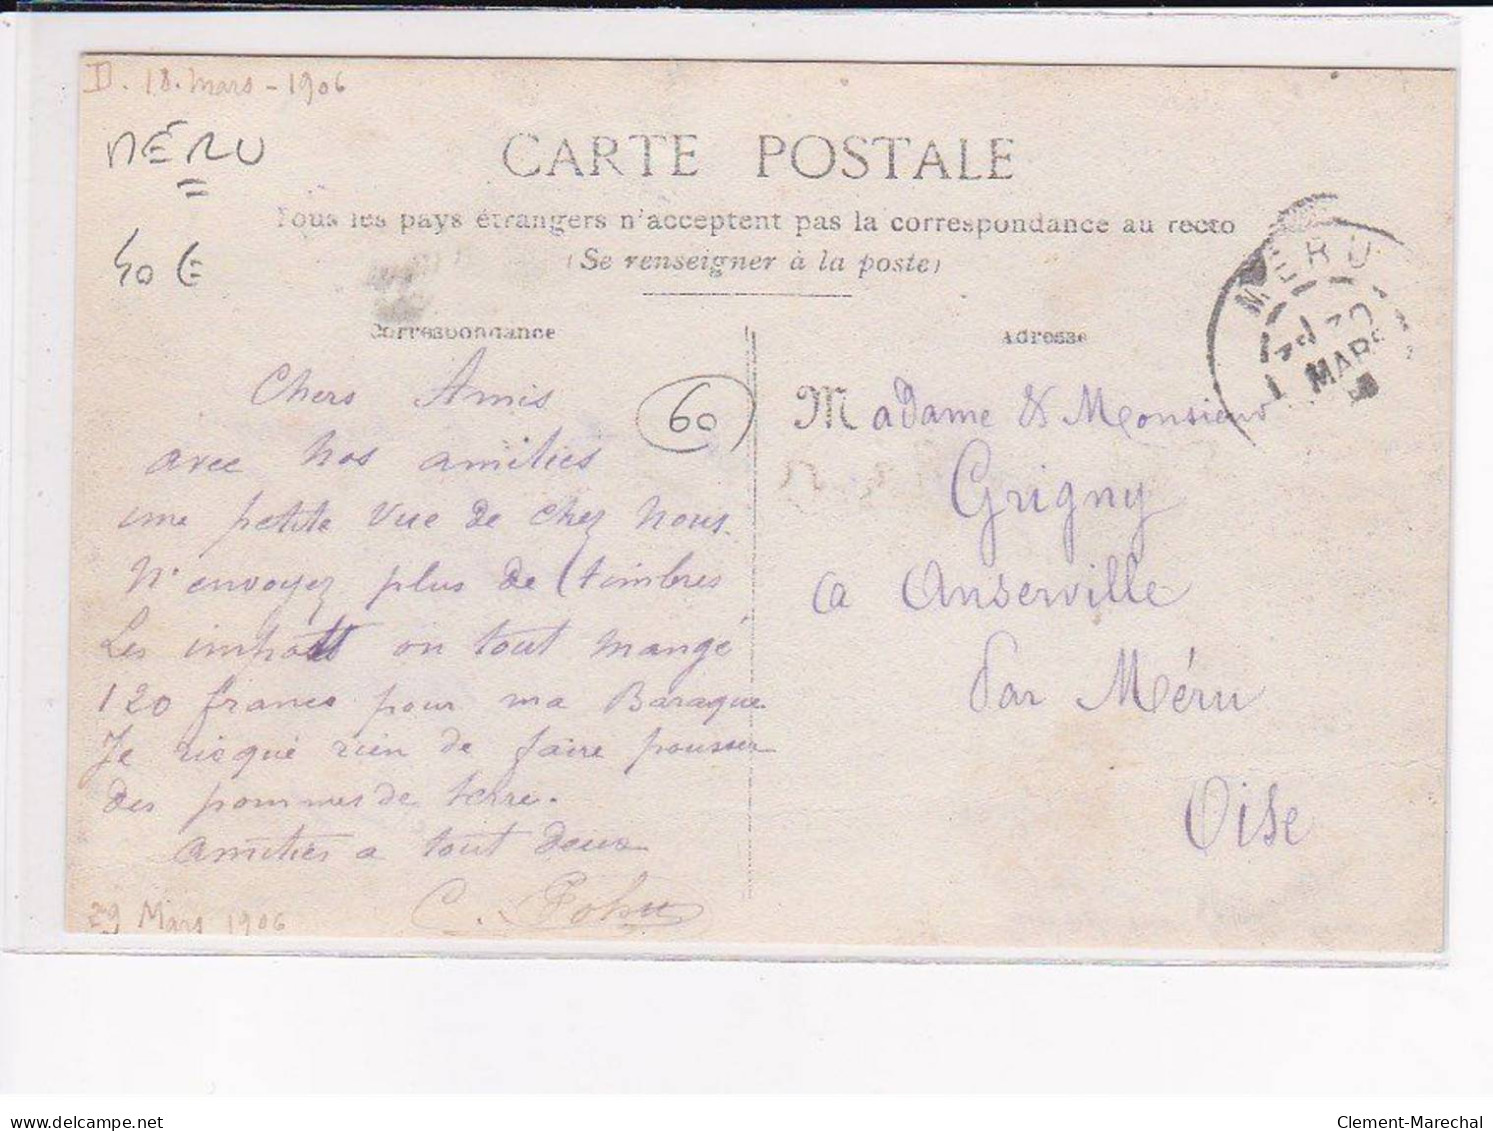 D. 18. Mars - 1906
MÉRU
40 €
CARTE POSTALE
Tous les pays étrangers n'acceptent pas la correspondance au recto
(Se renseigner à la poste)
Correspondance
Chers Amis
avec nos amitiés
une petite vue de chez nous.
N'envoyez plus de timbres
Les impots on tout mangé
120 francs pour ma Baraque
Je risque rien de faire pousser
des pommes de terre.
amitiés a tout deux
C.
29 Mars 1906
60
Adresse
Madame & Monsieur
Grigny
a Anserville
Par Méru
Oise
MERU
MARS
delcampe.net
Clement-Marechal